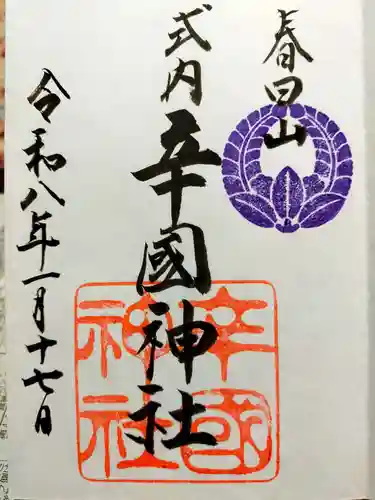 春日山
式内
辛國神社
辛國
神社
令和八年一月十七日